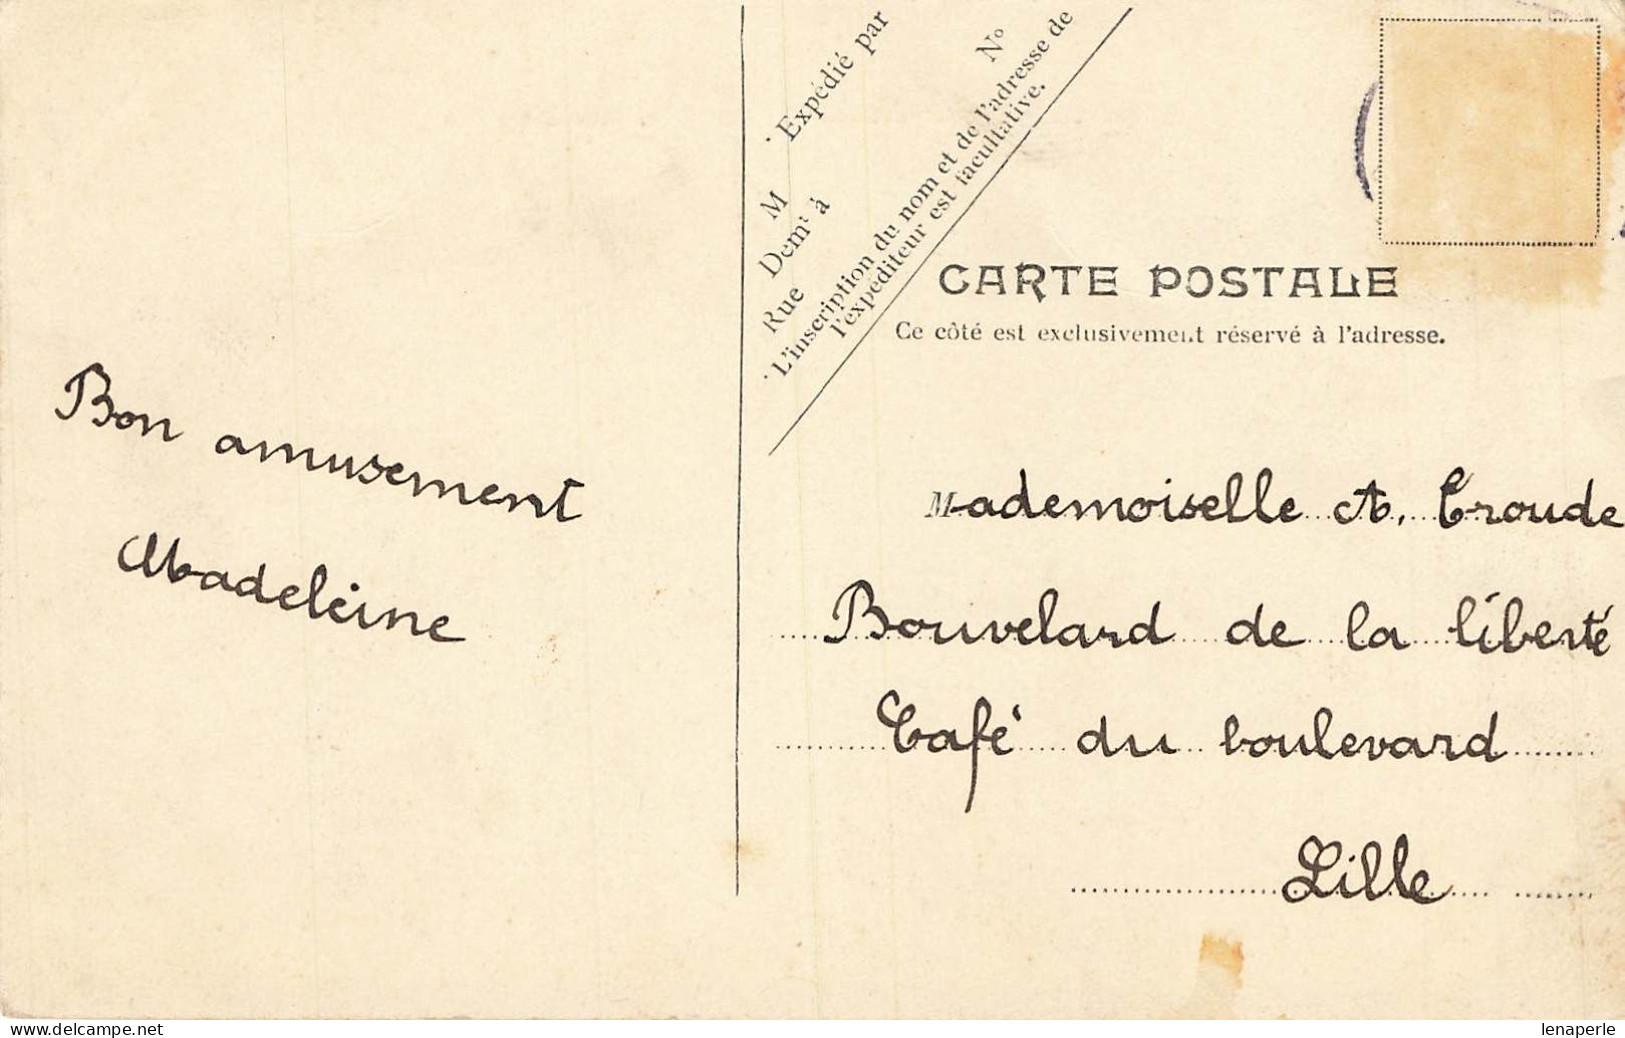 Expédié par
M
Demt à
Rue
No
L'inscription du nom et de l'adresse de
l'expéditeur est facultative.
CARTE POSTALE
Ce côté est exclusivement réservé à l'adresse.
Bon amusement
Madeleine
Mademoiselle A. Troude
Bouvelard de la liberté
Café du boulevard
Lille
www.delcampe.net
lenaperle